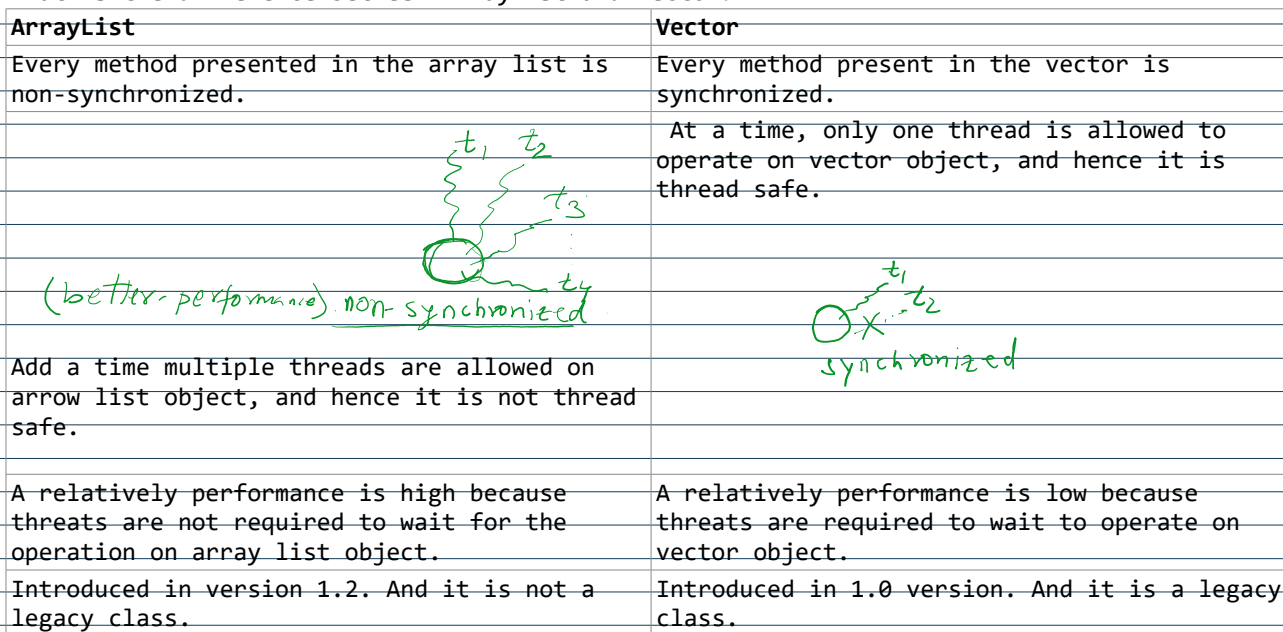 ArrayList
Vector
Every method presented in the array list is
non-synchronized.
Every method present in the vector is
synchronized.
t1 t2
t3
t4
(better-performance) non-synchronized
Add a time multiple threads are allowed on
arrow list object, and hence it is not thread
safe.
At a time, only one thread is allowed to
operate on vector object, and hence it is
thread safe.
t1
t2
X
synchronized
A relatively performance is high because
threats are not required to wait for the
operation on array list object.
A relatively performance is low because
threats are required to wait to operate on
vector object.
Introduced in version 1.2. And it is not a
legacy class.
Introduced in 1.0 version. And it is a legacy
class.